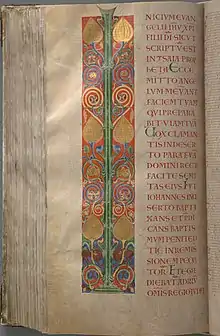 NICIVM EVAN
GELII DNI XPI
FILII DI SICVT
SCRIPTV EST
IN ISAIA PRO
PHETA ECCE
MITTO ANGE
LVM MEVM ANTE
FACIEM TVAM
QVI PREPARA
BIT VIAM TVA
VOX CLAMAN
TIS IN DESER
TO PARATE VIA
DOMINI RECTAS
FACITE SEMI
TAS EIVS FVIT
IOHANNES IN D
SERTO BAPTI
XANS ET PRE DI
CANS BAPTIS
MVM PENITEN
TIE IN REMIS
SIONEM PECCA
TORVM ET EGRE
DIEBAT AD ILLVM
OMIS REGIO IVDE